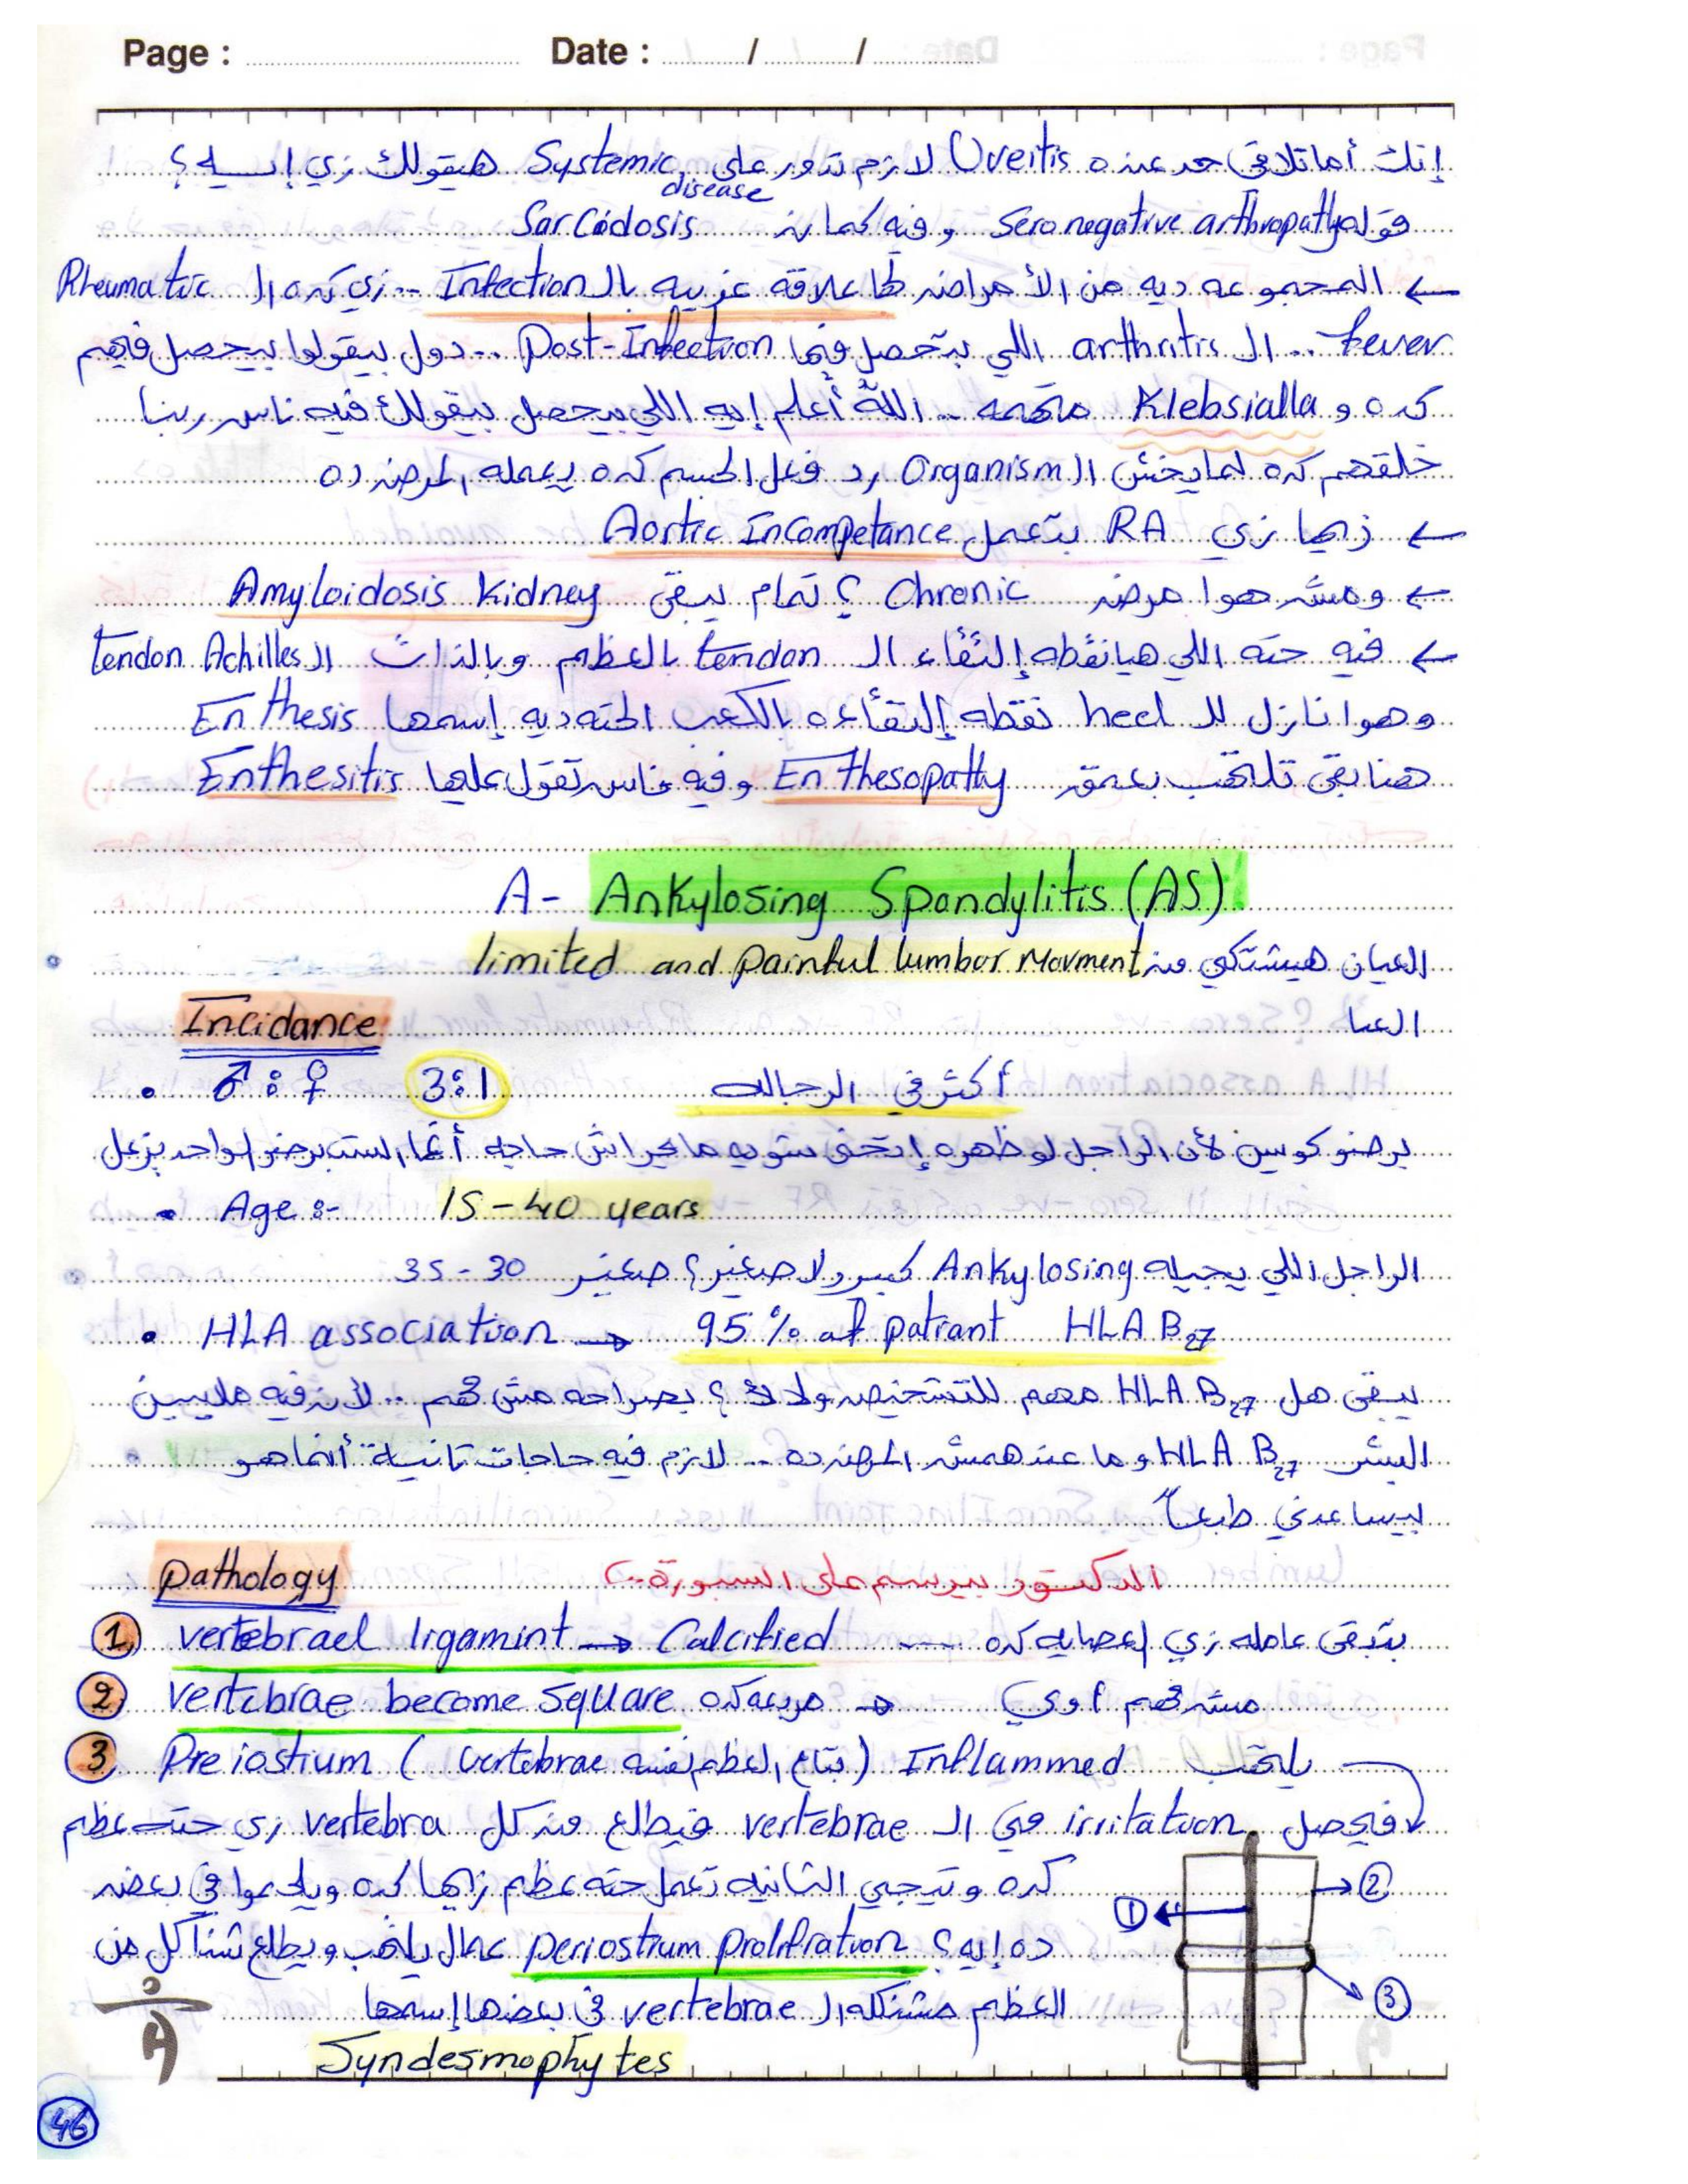 Page : Date : / /
إنك أما تلاقي حد عنده Uveitis لازم تدور على Systemic disease هيقولك زي إيه ؟
قوله Seronegative arthropathy وفيه كمان Sarcodosis
← المجموعه ديه من الأمراض لها علاقه غريبه بالـ Infection .. زي كده الـ Rheumatic
fever .. الـ arthritis اللي بتحصل فيها Post-Infection .. دول بيقولوا بيحصل فيهم
كده و Klebsialla متهمه .. الله أعلم إيه اللي بيحصل بيقولك فيه ناس ربنا
خلقهم كده لما يخش الـ Organism رد فعل الجسم كده يعمله المرض ده
← زيها زي RA بتعمل Aortic Incompetance
← ومش هوا مرض Chronic ؟ تمام يبقى Amyloidosis Kidney
← فيه حته اللي هيا نقطه إلتقاء الـ tendon بالعظم وبالذات الـ tendon Achilles
وهوا نازل للـ heel نقطه إلتقاءه بالكعب الحته ديه إسمها Enthesis
هنا بقى تلتهب بعمق Enthesopathy وفيه ناس تقول عليها Enthesitis
A- Ankylosing Spondylitis (AS)
العيان هيشتكي من limited and painful lumbar Movment
العيا
Incidance
• ♂ : ♀ 3:1 أكثر في الرجاله
برضو كويس لأن الراجل لو ظهره إتحنى شويه ما يجراش حاجه أنما الست برضو الواحد يزعل
• Age :- 15 - 40 years
الراجل اللي يجيله Ankylosing كبير ولا صغير؟ صغير 30 - 35
• HLA association → 95 % of patiant HLA B27
يبقى هل HLA B27 مهم للتشخيص ولا لأ ؟ بصراحه مش مهم .. لأن فيه ملايين
البشر HLA B27 وما عندهمش المرض ده .. لازم فيه حاجات تانية أنما هو
بيساعدني طبعاً
Pathology الدكتور بيرسم على السبورة..
① vertebrael ligamint → Calcified ---- بتبقى عامله زي إعصايه كده
② vertebrae become square مربعه كده → مش مهم أوي
③ Preiostium ( بتاع العظم نفسه vertebrae ) Inflammed يلتهب
فيحصل irritation في الـ vertebrae فيطلع من كل vertebra زي حته عظم
كده وتيجي التانيه تعمل حته عظم زيها كده ويلحموا في بعض
ده إيه؟ periostium prolifration عمال يلتهب ويطلع شناكل من
العظم مشنكله الـ vertebrae في بعضها إسمها
Syndesmophytes
① ② ③
46